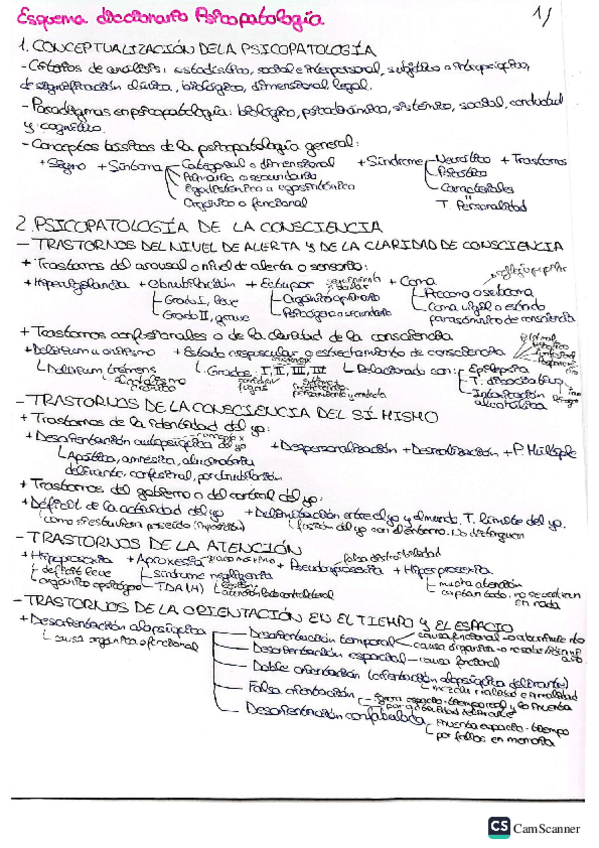 Esquema diccionario Psicopatología. 1/
1. CONCEPTUALIZACIÓN DE LA PSICOPATOLOGÍA
- Criterios de análisis: estadístico, social e interpersonal, subjetivo o intrapsíquico,
de significación clínica, biológico, dimensional legal.
- Paradigmas en psicopatología: biológico, psicodinámico, sistémico, social, conductual
y cognitivo.
- Conceptos básicos de la psicopatología general:
+ Signo + Síntoma Categorial o dimensional + Síndrome Neurótico + Trastornos
Primario o secundario Psicótico
Egodistónico o egosintónico Caracteriales
Orgánico o funcional T. Personalidad
2. PSICOPATOLOGÍA DE LA CONSCIENCIA
- TRASTORNOS DEL NIVEL DE ALERTA Y DE LA CLARIDAD DE CONSCIENCIA
+ Trastornos del arousal o nivel de alerta o sensorio:
+ Hipervigilancia + Obnubilación + Estupor + Coma
Grado I, leve Orgánico o primario
Grado II, grave Psicógeno o secundario Coma vigil o estado
parasomnico de consciencia
+ Trastornos confusionales o de la claridad de la consciencia
+ Delirium u onirismo + Estado crepuscular o estrechamiento de consciencia
Delirium tremens Grados: I, II, III, IIII Relacionado con: Epilepsia
T. disociativo
Intoxicación
alcohólica
- TRASTORNOS DE LA CONSCIENCIA DEL SÍ MISMO
+ Trastornos de la identidad del yo:
+ Desorientación autopsíquica + Despersonalización + Desrealización + P. Múltiple
Apática, amnésica,
delirante, confusional, por obnubilación
+ Trastornos del gobierno o del control del yo:
+ Déficit de la actividad del yo + Delimitación entre el yo y el mundo, T. límite del yo.
como si estuviera poseído fusión del yo con el entorno. No distinguen
- TRASTORNOS DE LA ATENCIÓN falsa distraibilidad
+ Hipoprosexia + Aprosexia + Pseudoaprosexia + Hiperprosexia
déficit leve Síndrome negligencia mucha atención
TDA(H) captan todo, no se centran
en nada
- TRASTORNOS DE LA ORIENTACIÓN EN EL TIEMPO Y EL ESPACIO
+ Desorientación alopsíquica Desorientación temporal
causa orgánica o funcional Desorientación espacial - causa funcional
Doble orientación (orientación alopsíquica delirante)
mezcla realidad e irrealidad
Falsa orientación
Desorientación confabulada inventa espacio-tiempo
por fallos en memoria
CS CamScanner